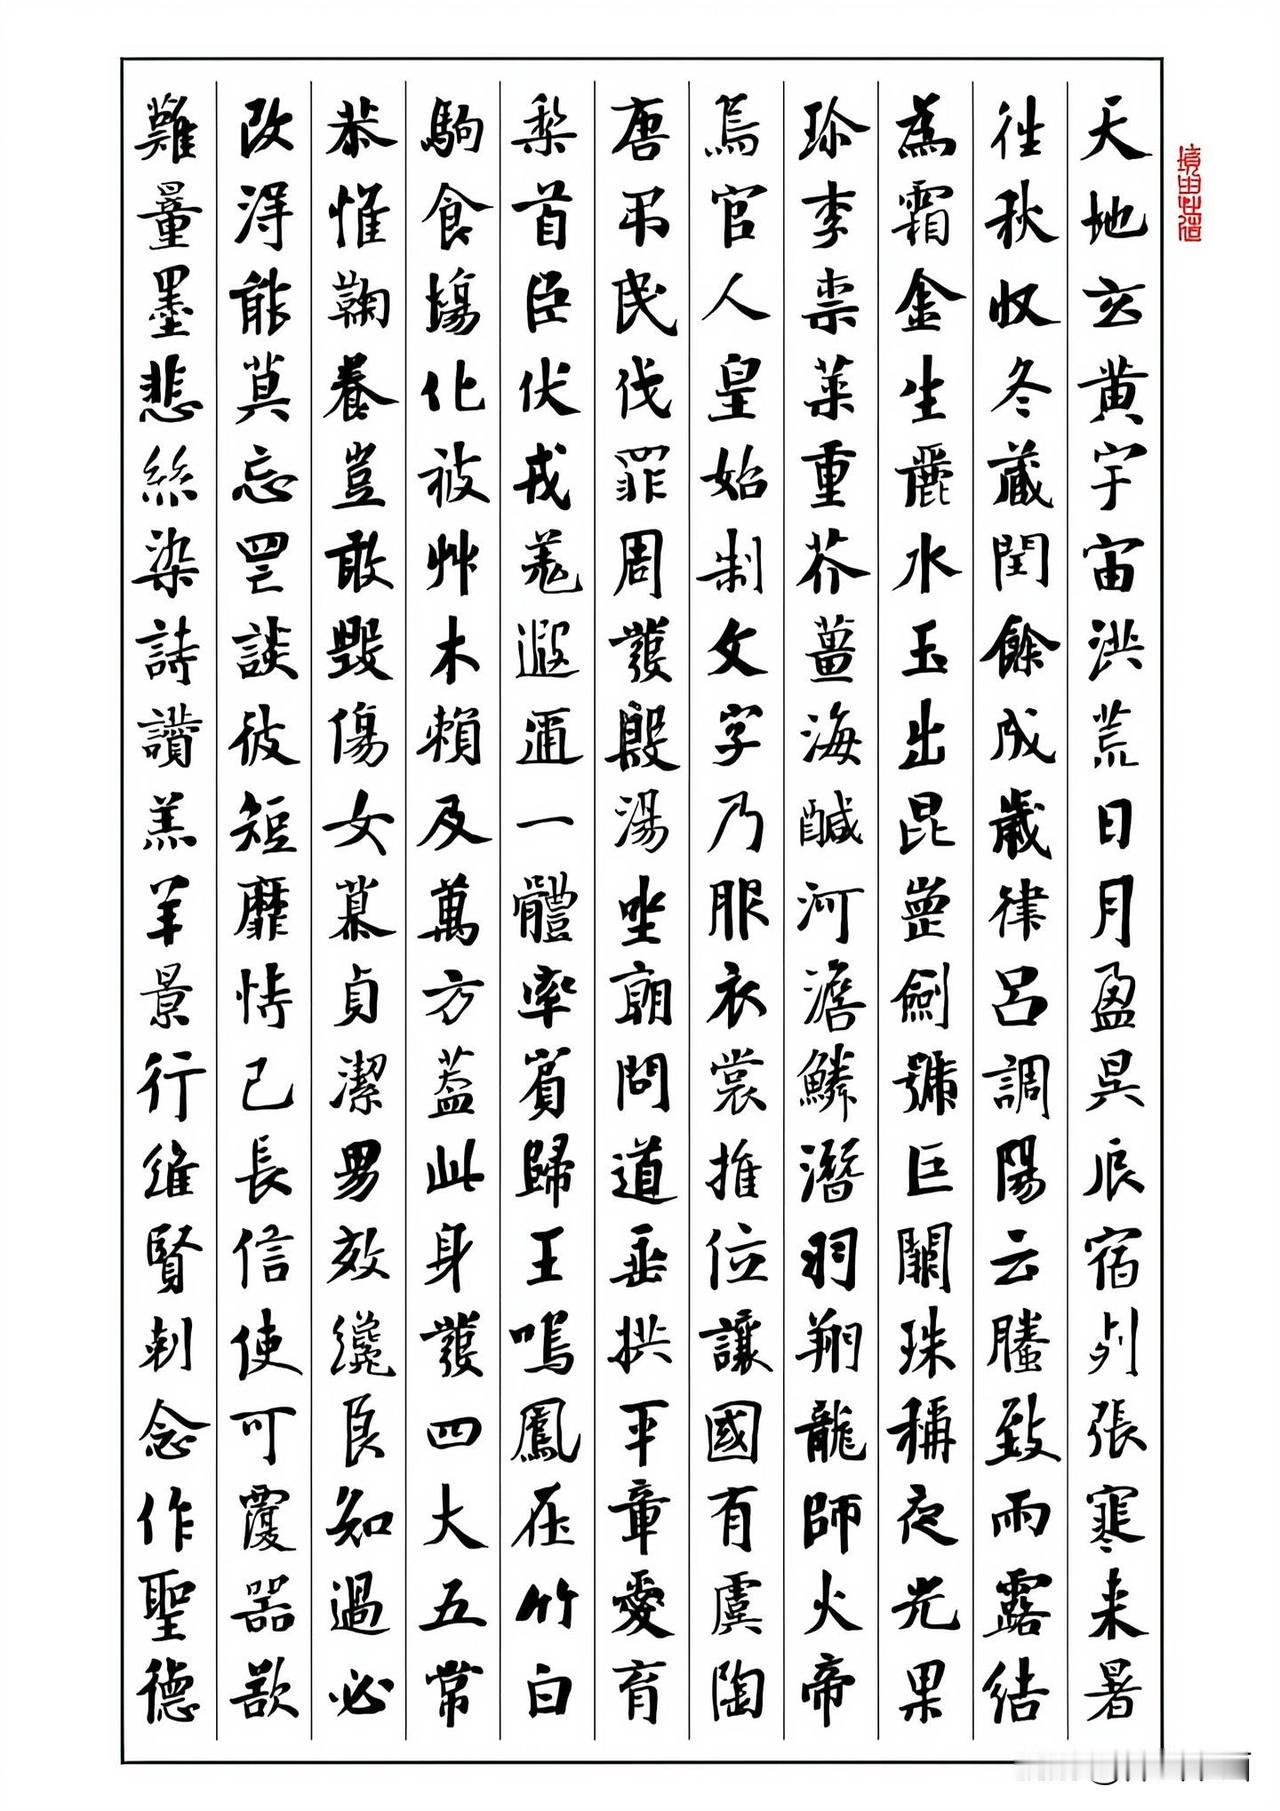 天地玄黄宇宙洪荒日月盈昃辰宿列張寒来暑
往秋收冬藏閏餘成歲律呂調陽云騰致雨露結
為霜金生麗水玉出昆崗劍號巨闕珠稱夜光果
珍李柰菜重芥薑海鹹河澹鱗潛羽翔龍師火帝
鳥官人皇始制文字乃服衣裳推位讓國有虞陶
唐吊民伐罪周發殷湯坐朝問道垂拱平章愛育
黎首臣伏戎羌遐邇一體率賓歸王鳴鳳在竹白
駒食場化被艸木賴及萬方蓋此身發四大五常
恭惟鞠養豈敢毀傷女慕貞潔男效纔良知過必
改得能莫忘罔談彼短靡恃己長信使可覆器欲
難量墨悲絲染詩讚羔羊景行維賢剋念作聖德
境由心造